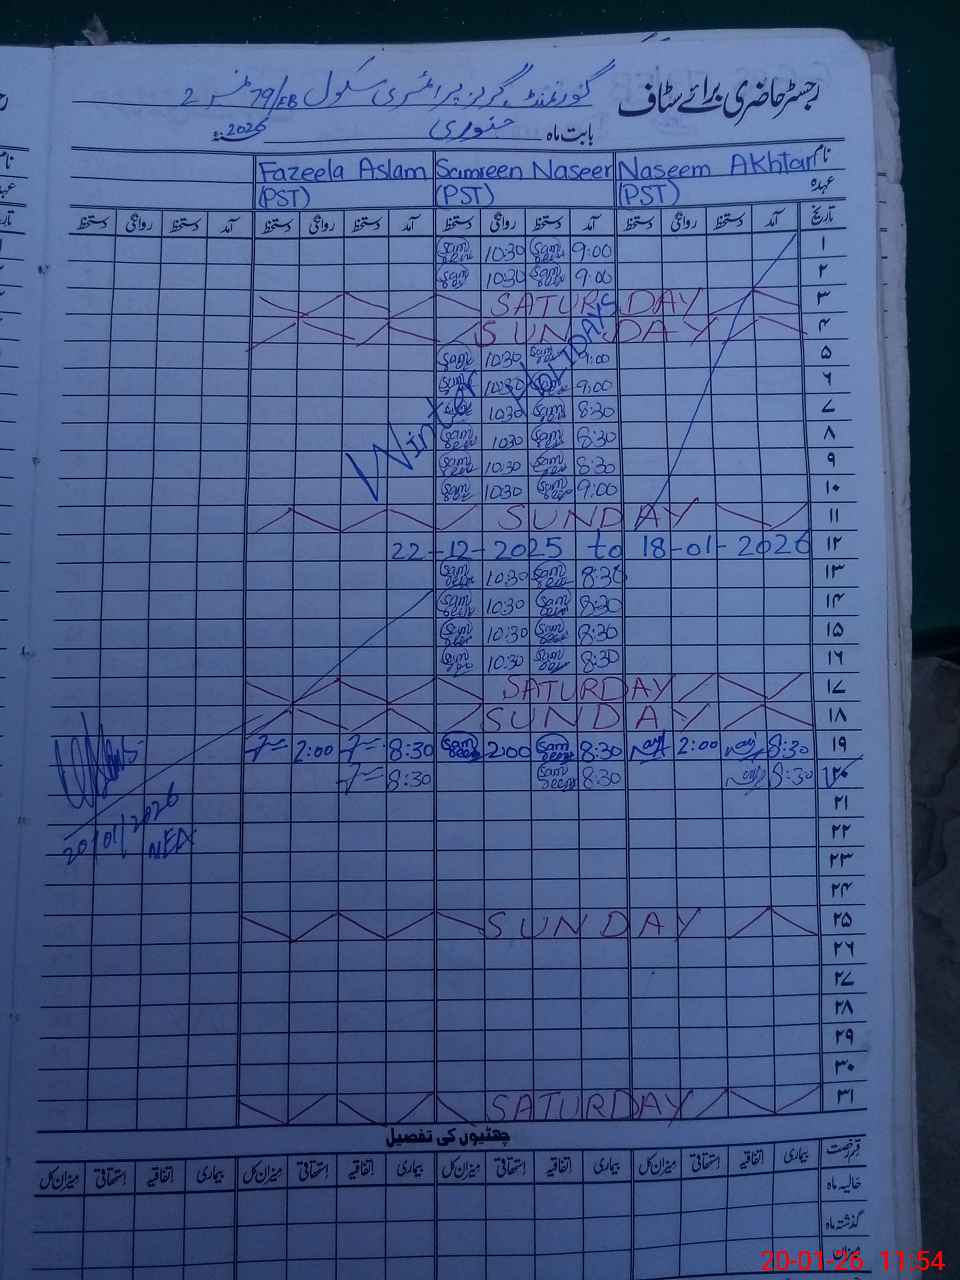 رجسٹر حاضری برائے سٹاف
گورنمنٹ گرلز پرائمری سکول 79/EB نمبر 2
بابت ماہ جنوری 2026ء
نام Naseem Akhtar Samreen Naseer Fazeela Aslam
عہدہ (PST) (PST) (PST)
تاریخ آمد دستخط روانگی دستخط آمد دستخط روانگی دستخط آمد دستخط روانگی دستخط آمد دستخط روانگی دستخط
۱ 9:00 Samreen 10:30 Samreen
۲ 9:00 Sam 10:30 Sam
۳ SATURSDAY
۴ SUNDAY
۵ 9:00 Sam 10:30 Sam
۶ 9:00 10:30 Sam
۷ 8:30 10:30
۸ 8:30 Sam 10:30 Sam
۹ 8:30 Sam 10:30 Sam
۱۰ 9:00 Sam 10:30 Sam
Winter HOLIDAYS
۱۱ SUNDAY
۱۲ 22-12-2025 to 18-01-2026
۱۳ 8:30 Sam 10:30 Sam
۱۴ 8:30 Sam 10:30 Sam
۱۵ 8:30 Sam 10:30 Sam
۱۶ 8:30 Sam 10:30 Sam
۱۷ SATURDAY
۱۸ SUNDAY
۱۹ 8:30 2:00 8:30 Samreen 2:00 Samreen 8:30 2:00
۲۰ 8:30 8:30 Samreen 8:30
20/01/2026
۲۱
۲۲
۲۳
۲۴
۲۵ SUNDAY
۲۶
۲۷
۲۸
۲۹
۳۰
۳۱ SATURDAY
چھٹیوں کی تفصیل
قسم رخصت بیماری اتفاقیہ استحقاقی میزان کل بیماری اتفاقیہ استحقاقی میزان کل بیماری اتفاقیہ استحقاقی میزان کل بیماری اتفاقیہ استحقاقی میزان کل
حالیہ ماہ
گذشتہ ماہ
میزان
20-01-26 11:54